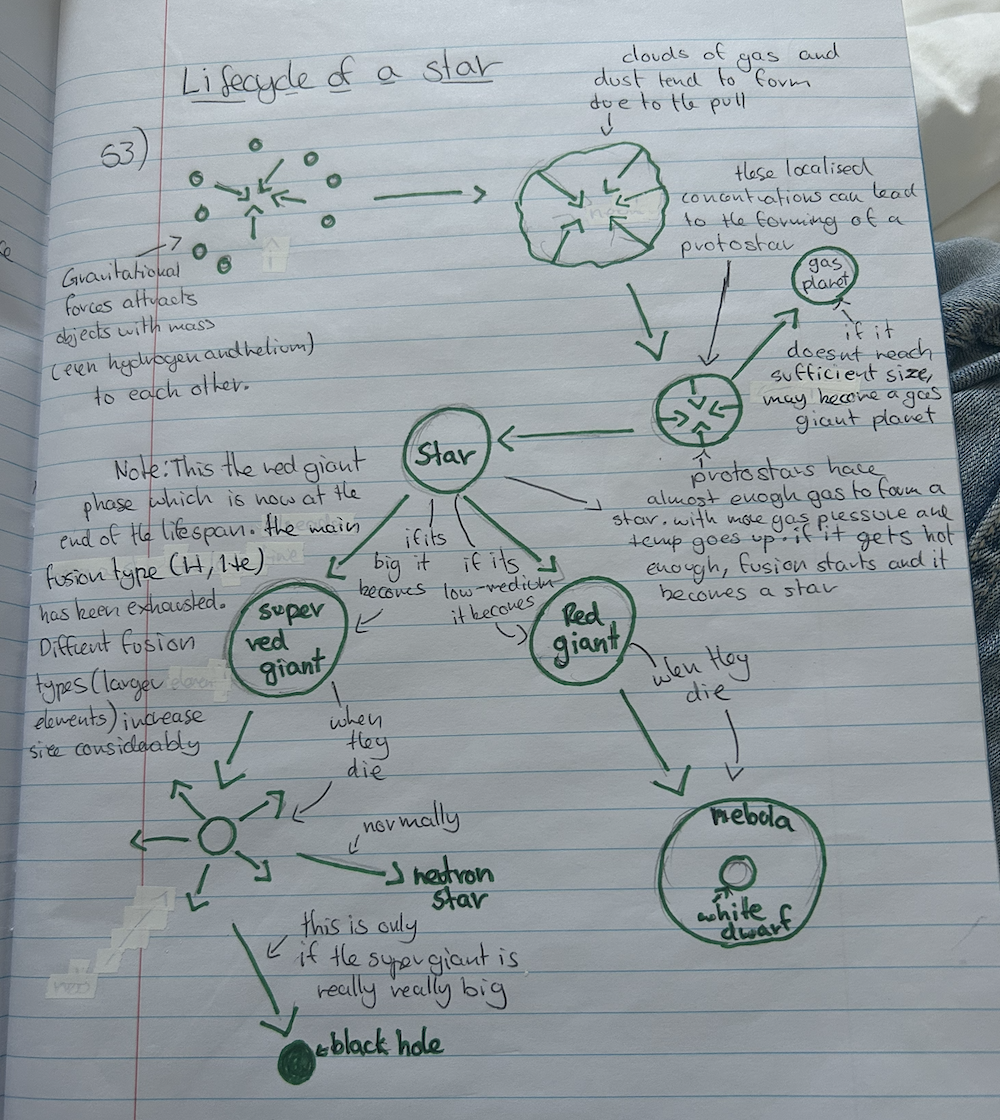 Lifecycle of a star
clouds of gas and
dust tend to form
due to the pull
S3)
these localised
concentrations can lead
to the forming of a
protostar
Gravitational
forces attracts
objects with mass
(even hydrogen and helium)
to each other.
gas
planet
if it
doesnt reach
sufficient size,
may become a gas
giant planet
Star
protostars have
almost enogh gas to form a
star. with more gas pressure and
temp goes up. if it gets hot
enough, fusion starts and it
becomes a star
Note: This the red giant
phase which is now at the
end of the lifespan. the main
fusion type (H, He)
has been exhausted.
Diffrent fusion
types (larger
elements) increase
size considerably
if its
big it
becomes
if its
low-medium
it becomes
super
red
giant
Red
giant
when they
die
when they
die
normally
neutron
star
nebula
white
dwarf
this is only
if the super giant is
really really big
black hole